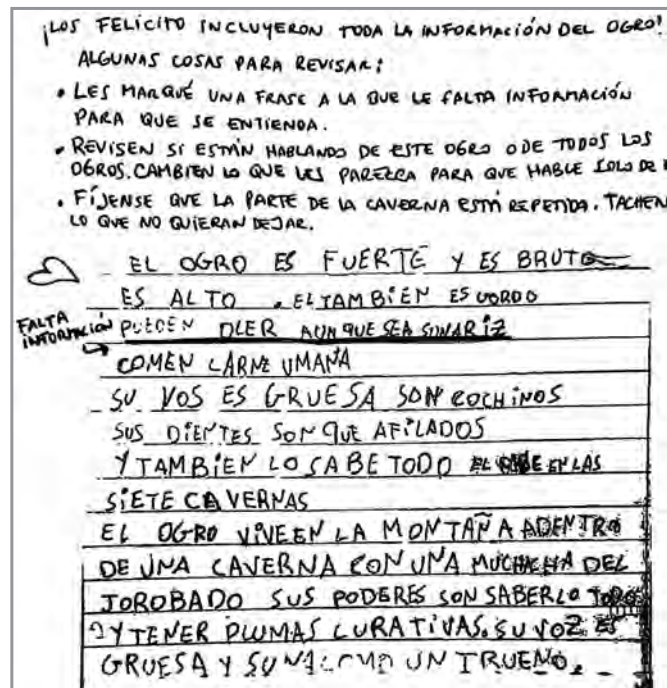 ¡LOS FELICITO INCLUYERON TODA LA INFORMACIÓN DEL OGRO!
ALGUNAS COSAS PARA REVISAR:
• LES MARQUÉ UNA FRASE A LA QUE LE FALTA INFORMACIÓN
PARA QUE SE ENTIENDA.
• REVISEN SI ESTÁN HABLANDO DE ESTE OGRO O DE TODOS LOS
OGROS. CAMBIEN LO QUE LES PAREZCA PARA QUE HABLE SOLO DE
• FÍJENSE QUE LA PARTE DE LA CAVERNA ESTÁ REPETIDA. TACHEN
LO QUE NO QUIERAN DEJAR.
EL OGRO ES FUERTE Y ES BRUTO
ES ALTO . EL TAMBIEN ES GORDO
FALTA INFORMACIÓN
PUEDEN OLER AUNQUE SEA SUNARIZ
COMEN CARNE UMANA
SU VOS ES GRUESA SON COCHINOS
SUS DIENTES SON QUE AFILADOS
Y TAMBIEN LO SABE TODO EL EN LAS
SIETE CAVERNAS
EL OGRO VIVE EN LA MONTAÑA ADENTRO
DE UNA CAVERNA CON UNA MUCHACHA DEL
JOROBADO SUS PODERES SON SABERLO TODO
Y TENER PLUMAS CURATIVAS. SU VOZ ES
GRUESA Y UN TRUENO.